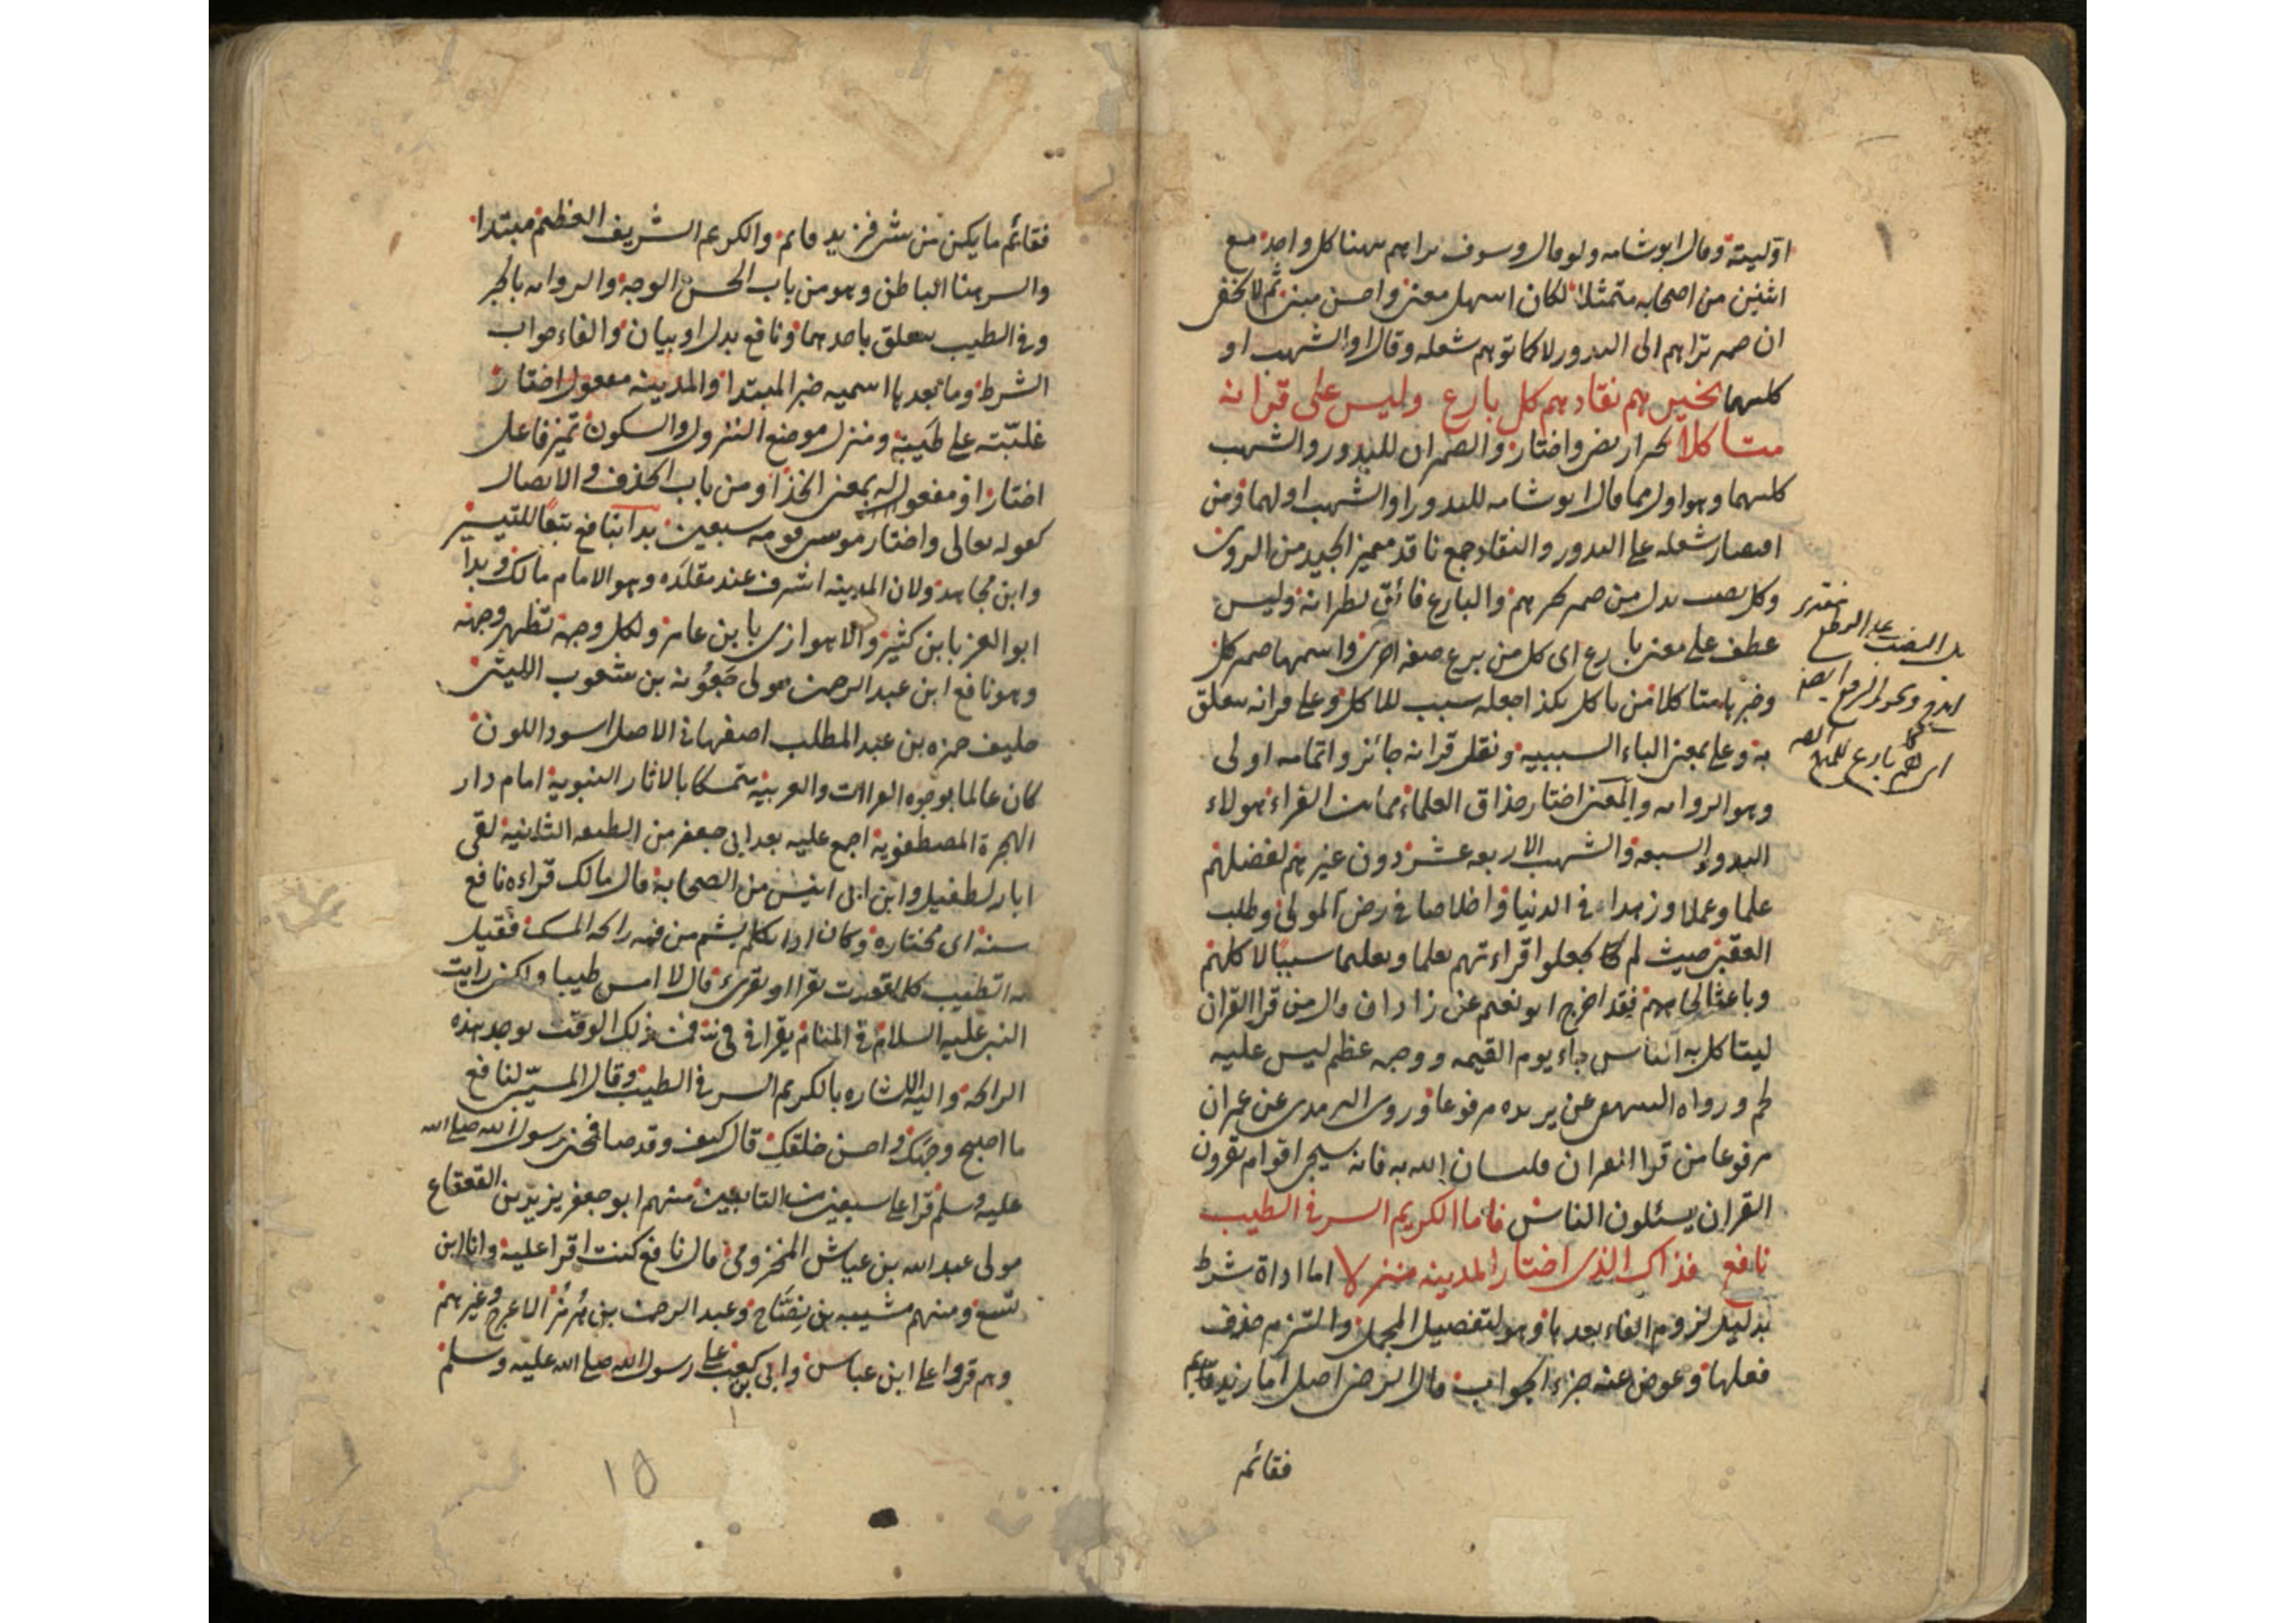 اوّليته وقال ابو شامه ولو قال وسوف تراهم ههنا كل واحد مع
اثنين من اصحابه متمثلا لكان اسهل معنى واحسن مبنى ثم لا يخفى
ان ضمير تراهم الى البدور لا كما توهم شعله وقال او الشهب او
كليهما تخيرهم نقادهم كل بارع وليس على قرانه
متاكلا تحرار يض واختار والضميران للبدور والشهب
كليهما وهو اولى مما قال ابو شامه للبدور او الشهب اولهما ومن
اقتصار شعله على البدور والنقاد جمع ناقد مميز الجيد من الردى
وكل نصب بدل من ضمير تخيرهم والبارع فائق نظرائه وليس
عطف على معنى بارع اى كل من برع صفة اخرى واسمها ضمير كل
وخبرها متاكلا من تاكل بكذا جعله سبب للاكل وعلى قرانه يتعلق
به وعلى بمعنى الباء السببيه ونقل قرانه جائز واتمامه اولى
وهو الروايه والمعنى اختار حذاق العلماء من ائمة القراء هولاء
البدور السبعة والشهب الاربعه عشر دون غيرهم لفضلهم
علما وعملا وزهدا فى الدنيا واخلاصا فى رضى المولى وطلب
العقبى حيث لم يجعلوا قراءتهم تعلما وتعليما سببا لاكلهم
وباعثا لجاههم فقد اخرج ابو نعيم عن زاذان قال من قرا القران
ليتاكل به الناس جاء يوم القيمه ووجهه عظم ليس عليه
لحم ورواه البيهقى عن بريده مرفوعا وروى الترمذى عن عمران
مرفوعا من قرا القران فليسال الله به فانه سيجى اقوام يقرون
القران يسئلون الناس فاما الكريم السر فى الطيب
نافع فذاك الذى اختار المدينه منزلا اما اداة شرط
بدليل لزوم الفاء بعدها وهو لتفصيل المجمل والتزم حذف
فعلها وعوض عنه جزء الجواب قال الرضى اصل اما زيد فقايم
فقائم
فقائم ما يكن من شى فزيد قائم والكريم الشريف العظيم مبتدا
والسر هنا الباطن وهو من باب الحسن الوجه والروايه بالجر
وفى الطيب يتعلق باحدهما ونافع بدل او بيان والفاء جواب
الشرط وما بعدها اسميه خبر المبتدا والمدينه مفعول اختار
غلبته على طيبة ومنزل موضع النزول والسكون تميز فاعل
اختار او مفعول له بمعنى اتخذ او من باب الحذف والايصال
كقوله تعالى واختار موسى قومه سبعين بدا بنافع تبعا للتيسير
وابن مجاهد ولان المدينه اشرف عند مقلده وهو الامام مالك وبدا
ابو العز بابن كثير والاهوازى بابن عامر ولكل وجهة تظهر وجهه
وهو نافع ابن عبد الرحمن مولى جعونه بن شعوب الليثى
حليف حمزه بن عبد المطلب اصفهانى الاصل اسود اللون
كان عالما بوجوه القراات والعربية متمسكا بالاثار النبوية امام دار
الهجرة المصطفوية اجمع عليه بعد ابى جعفر من الطبقه الثانية لقى
ابا الطفيل وابن ابى انيس من الصحابة قال مالك قراءه نافع
سنة اى مختاره وكان اذا تكلم يشم من فيه رائحه المسك فقيل
له اتطيب كلما قعدت تقرا او تقرى قال لا امس طيبا ولكن رايت
النبى عليه السلام فى المنام يقرا فى فى فمن ذلك الوقت يوجد هذه
الرائحه واليه الاشاره بالكريم السر فى الطيب وقال المسيبى لنافع
ما اصبح وجهك واحسن خلقك قال كيف وقد صافحنى رسول الله صلى الله
عليه وسلم قرا على سبعين من التابعين منهم ابو جعفر يزيد بن القعقاع
مولى عبد الله بن عياش المخزومى قال نافع كنت اقرا عليه وانا ابن
تسع ومنهم شيبه بن نصاح وعبد الرحمن بن هرمز الاعرج وغيرهم
وهم قروا على ابن عباس وابى بن كعب على رسول الله صلى الله عليه وسلم
١٥